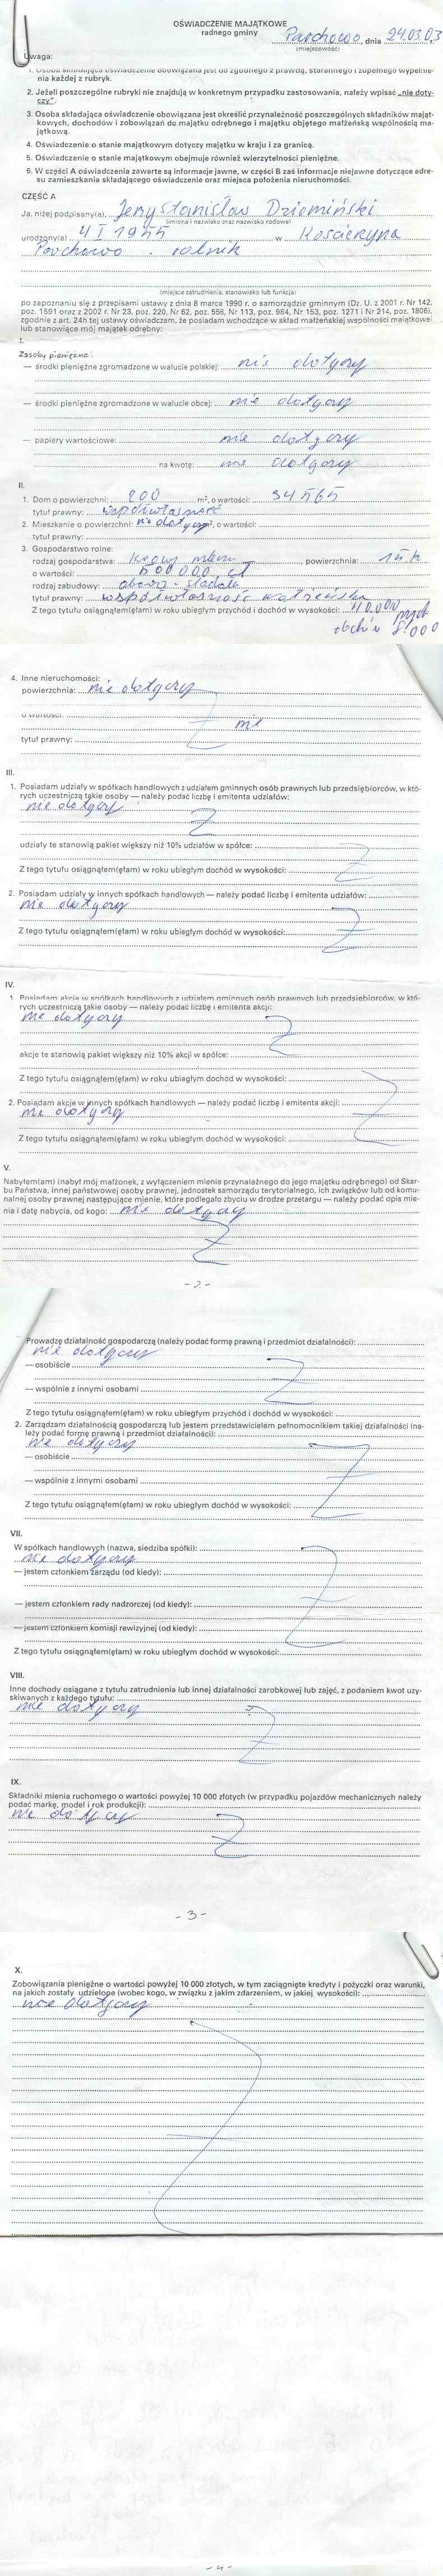 OŚWIADCZENIE MAJĄTKOWE
radnego gminy
Parchowo, dnia 24.03.03 r.
(miejscowość)
Uwaga:
1. Osoba składająca oświadczenie obowiązana jest do zgodnego z prawdą, starannego i zupełnego wypełnienia każdej z rubryk.
2. Jeżeli poszczególne rubryki nie znajdują w konkretnym przypadku zastosowania, należy wpisać „nie dotyczy".
3. Osoba składająca oświadczenie obowiązana jest określić przynależność poszczególnych składników majątkowych, dochodów i zobowiązań do majątku odrębnego i majątku objętego małżeńską wspólnością majątkową.
4. Oświadczenie o stanie majątkowym dotyczy majątku w kraju i za granicą.
5. Oświadczenie o stanie majątkowym obejmuje również wierzytelności pieniężne.
6. W części A oświadczenia zawarte są informacje jawne, w części B zaś informacje niejawne dotyczące adresu zamieszkania składającego oświadczenie oraz miejsca położenia nieruchomości.
CZĘŚĆ A
Ja, niżej podpisany(a), Jerzy Stanisław Dziemiński
(imiona i nazwisko oraz nazwisko rodowe)
urodzony(a) 4 I 1955 w Kościerzyna
Parchowo . rolnik
(miejsce zatrudnienia, stanowisko lub funkcja)
po zapoznaniu się z przepisami ustawy z dnia 8 marca 1990 r. o samorządzie gminnym (Dz. U. z 2001 r. Nr 142,
poz. 1591 oraz z 2002 r. Nr 23, poz. 220, Nr 62, poz. 558, Nr 113, poz. 984, Nr 153, poz. 1271 i Nr 214, poz. 1806),
zgodnie z art. 24h tej ustawy oświadczam, że posiadam wchodzące w skład małżeńskiej wspólności majątkowej
lub stanowiące mój majątek odrębny:
I.
Zasoby pieniężne:
— środki pieniężne zgromadzone w walucie polskiej: nie dotyczy
— środki pieniężne zgromadzone w walucie obcej: nie dotyczy
— papiery wartościowe: nie dotyczy
na kwotę: nie dotyczy
II.
1. Dom o powierzchni: 200 m², o wartości: 34 565
tytuł prawny: współwłasność
2. Mieszkanie o powierzchni: nie dotyczy m², o wartości:
tytuł prawny:
3. Gospodarstwo rolne:
rodzaj gospodarstwa: powierzchnia:
o wartości: 500 000 zł
rodzaj zabudowy: obora - stodoła
tytuł prawny: współwłasność małżeńska
Z tego tytułu osiągnąłem(ęłam) w roku ubiegłym przychód i dochód w wysokości:
8.000
4. Inne nieruchomości:
powierzchnia: nie dotyczy
o wartości: nie
tytuł prawny:
III.
1. Posiadam udziały w spółkach handlowych z udziałem gminnych osób prawnych lub przedsiębiorców, w których uczestniczą takie osoby — należy podać liczbę i emitenta udziałów:
nie dotyczy
udziały te stanowią pakiet większy niż 10% udziałów w spółce:
Z tego tytułu osiągnąłem(ęłam) w roku ubiegłym dochód w wysokości:
2. Posiadam udziały w innych spółkach handlowych — należy podać liczbę i emitenta udziałów:
nie dotyczy
Z tego tytułu osiągnąłem(ęłam) w roku ubiegłym dochód w wysokości:
IV.
1. Posiadam akcje w spółkach handlowych z udziałem gminnych osób prawnych lub przedsiębiorców, w których uczestniczą takie osoby — należy podać liczbę i emitenta akcji:
nie dotyczy
akcje te stanowią pakiet większy niż 10% akcji w spółce:
Z tego tytułu osiągnąłem(ęłam) w roku ubiegłym dochód w wysokości:
2. Posiadam akcje w innych spółkach handlowych — należy podać liczbę i emitenta akcji:
nie dotyczy
Z tego tytułu osiągnąłem(ęłam) w roku ubiegłym dochód w wysokości:
V.
Nabyłem(am) (nabył mój małżonek, z wyłączeniem mienia przynależnego do jego majątku odrębnego) od Skarbu Państwa, innej państwowej osoby prawnej, jednostek samorządu terytorialnego, ich związków lub od komunalnej osoby prawnej następujące mienie, które podlegało zbyciu w drodze przetargu — należy podać opis mienia i datę nabycia, od kogo: nie dotyczy
- 2 -
Prowadzę działalność gospodarczą (należy podać formę prawną i przedmiot działalności):
nie dotyczy
— osobiście
— wspólnie z innymi osobami
Z tego tytułu osiągnąłem(ęłam) w roku ubiegłym przychód i dochód w wysokości:
2. Zarządzam działalnością gospodarczą lub jestem przedstawicielem pełnomocnikiem takiej działalności (należy podać formę prawną i przedmiot działalności):
nie dotyczy
— osobiście
— wspólnie z innymi osobami
Z tego tytułu osiągnąłem(ęłam) w roku ubiegłym dochód w wysokości:
VII.
W spółkach handlowych (nazwa, siedziba spółki):
nie dotyczy
— jestem członkiem zarządu (od kiedy):
— jestem członkiem rady nadzorczej (od kiedy):
— jestem członkiem komisji rewizyjnej (od kiedy):
Z tego tytułu osiągnąłem(ęłam) w roku ubiegłym dochód w wysokości:
VIII.
Inne dochody osiągane z tytułu zatrudnienia lub innej działalności zarobkowej lub zajęć, z podaniem kwot uzyskiwanych z każdego tytułu:
nie dotyczy
IX.
Składniki mienia ruchomego o wartości powyżej 10 000 złotych (w przypadku pojazdów mechanicznych należy podać markę, model i rok produkcji):
nie dotyczy
- 3 -
X.
Zobowiązania pieniężne o wartości powyżej 10 000 złotych, w tym zaciągnięte kredyty i pożyczki oraz warunki, na jakich zostały udzielone (wobec kogo, w związku z jakim zdarzeniem, w jakiej wysokości):
nie dotyczy
- 4 -